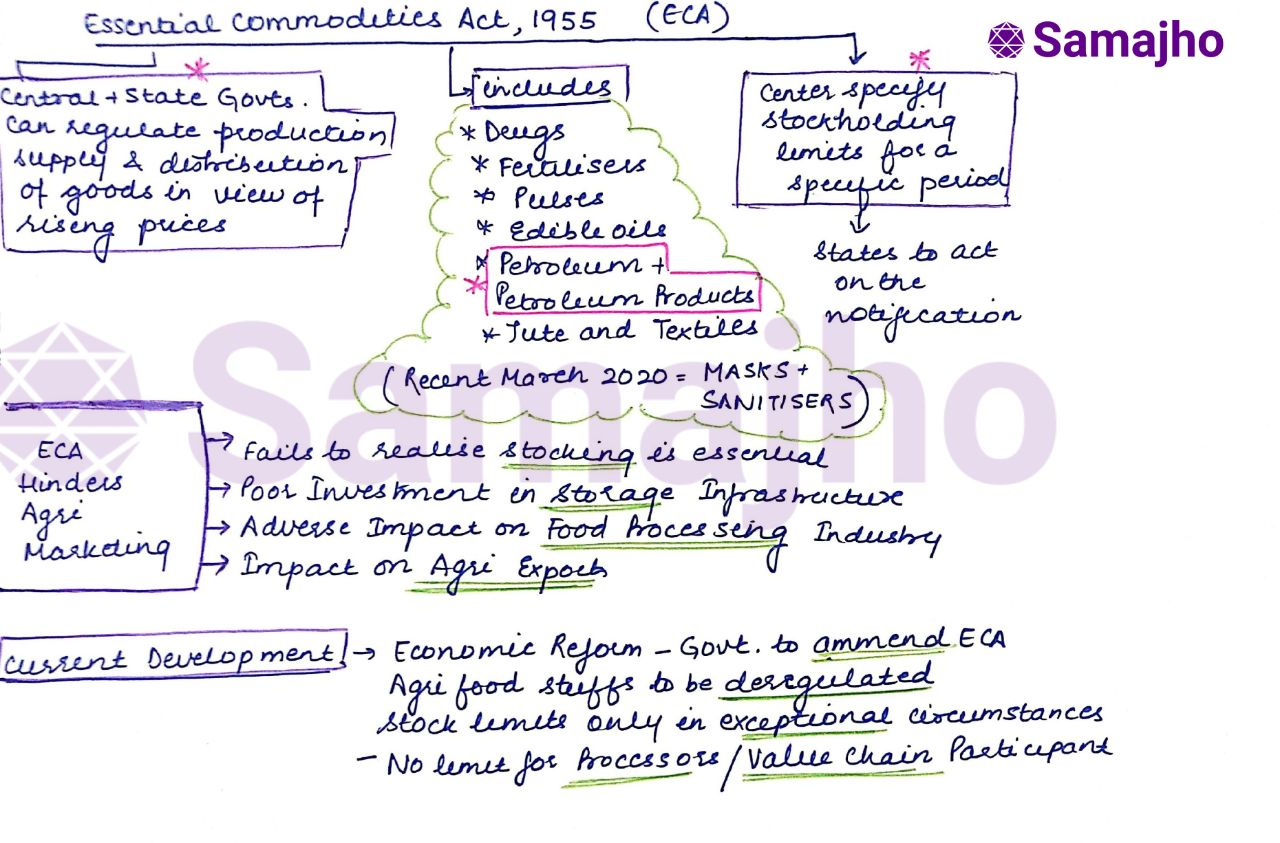 Essential Commodities Act, 1955 (ECA)
Samajho
Central + State Govts.
can regulate production
supply & distribution
of goods in view of
rising prices
includes
* Drugs
* Fertilisers
* Pulses
* Edible oils
* Petroleum +
* Petroleum Products
* Jute and Textiles
(Recent March 2020 = MASKS +
SANITISERS)
Center specify
stockholding
limits for a
specific period
States to act
on the
notification
Samajho
ECA
Hinders
Agri
Marketing
→ Fails to realise stocking is essential
→ Poor Investment in Storage Infrastructure
→ Adverse Impact on Food Processing Industry
→ Impact on Agri Exports
Current Development → Economic Reform – Govt. to ammend ECA
Agri food stuffs to be deregulated
Stock limits only in exceptional circumstances
– No limit for Processors / Value Chain Participant